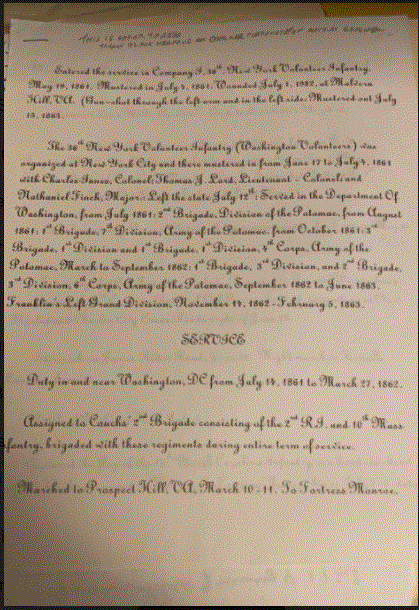 THIS IS
Entered the service in Company I, 36th New York Volunteer Infantry.
May 19, 1861. Mustered in July 4, 1861. Wounded July 1, 1932, at Malvern
Hill, VA. (Gun-shot through the left arm and in the left side. Mustered out July
15, 1863.
The 36th New York Volunteer Infantry (Washington Volunteers) was
organized at New York City and there mustered in from June 17 to July 4, 1861
with Charles Innes, Colonel; Thomas J. Lord, Lieutenant - Colonel; and
Nathaniel Finch, Major: Left the state July 12th: Served in the Department Of
Washington, from July 1861: 2nd Brigade, Division of the Potomac, from August
1861: 1st Brigade, 7th Division, Army of the Potomac, from October 1861: 3rd
Brigade, 1st Division and 1st Brigade, 1st Division, 4th Corps, Army of the
Potomac, March to September 1862: 1st Brigade, 3rd Division, and 2nd Brigade,
3rd Division, 6th Corps, Army of the Potomac, September 1862 to June 1863.
Franklin's Left Grand Division, November 14, 1862 - February 5, 1863.
SERVICE
Duty in and near Washington, DC from, July 14, 1861 to March 27, 1862.
Assigned to Couchs' 2nd Brigade consisting of the 2nd R.I. and 10th Mass
Infantry, brigaded with these regiments during entire term of service.
Marched to Prospect Hill, VA, March 10-11. To Fortress Monroe,